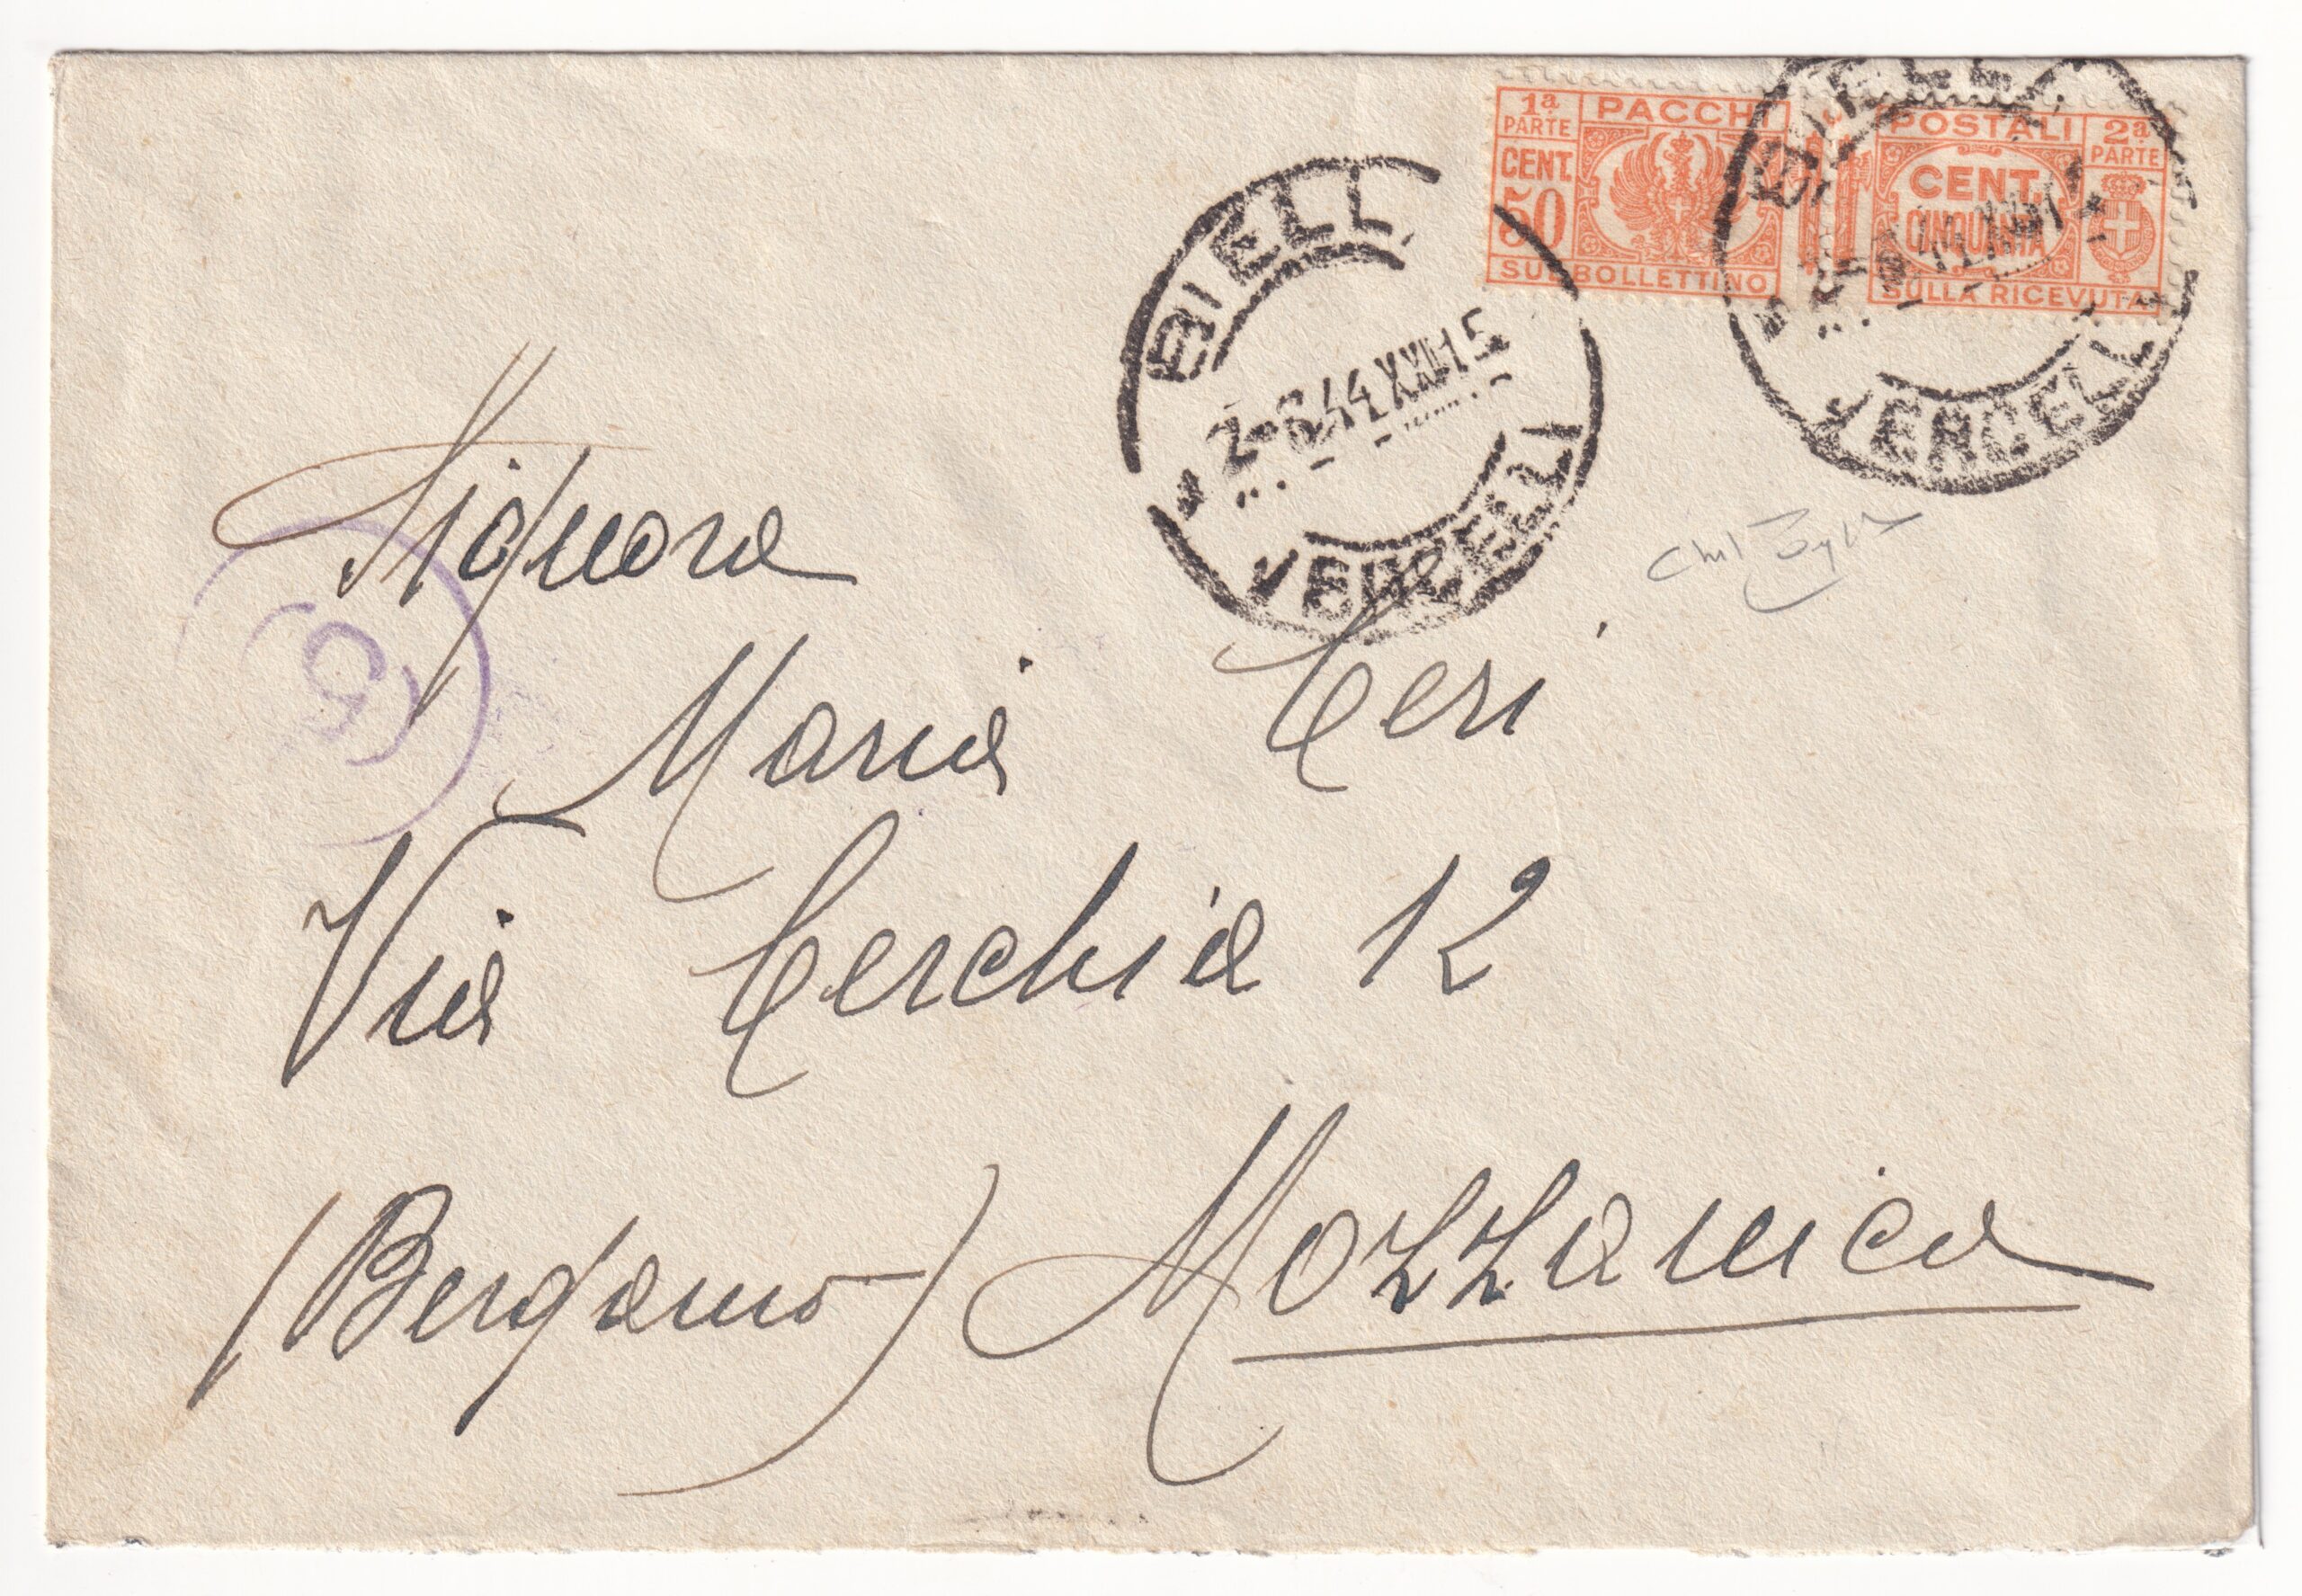 1ª PARTE PACCHI
CENT. 50
SUL BOLLETTINO
POSTALI 2ª PARTE
CENT. CINQUANTA
SULLA RICEVUTA
BIELL
VERCELLI
BIELL
VERCELLI
Signora
Maria Ceri
Via Cerchia 12
(Bergamo) Mozzanica